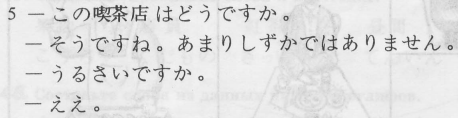 5 ーこの喫茶店 はどうですか。
ーそうですね。あまりしずかではありません。
ーうるさいですか。
ーええ。